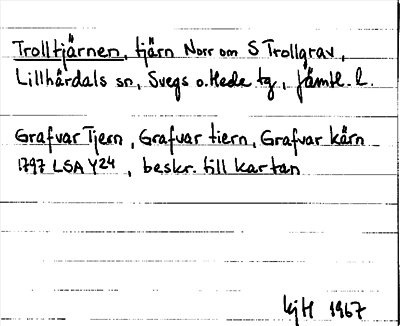 Trolltjärnen, tjärn Norr om S Trollgrav,
Lillhärdals sn, Svegs o. Hede tg, Jämtl. l.
Grafvar Tjern, Grafvar tiern, Grafvar kärn
1797 LSA Y24, beskr. till kartan
KjH 1967